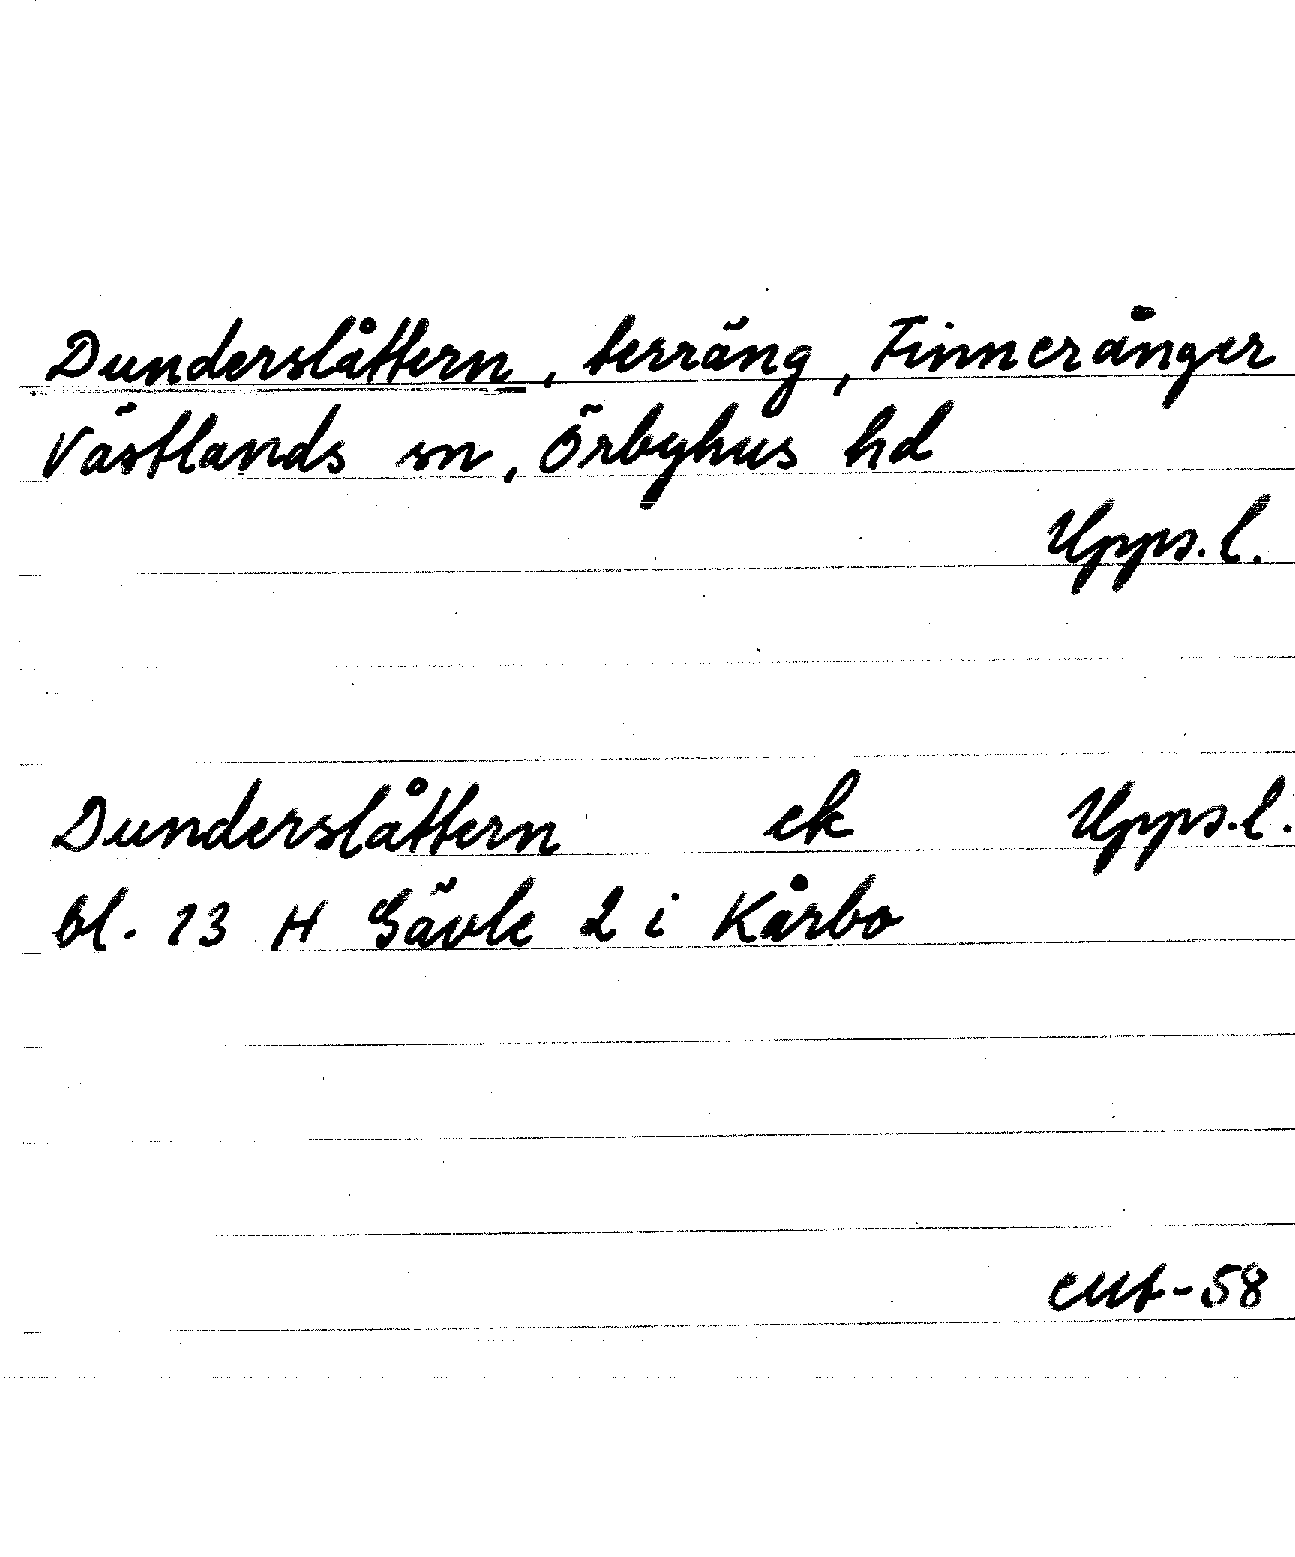 Dunderslåttern, terräng, Finneränger
Västlands sn, Örbyhus hd
Upps. l.
Dunderslåttern ek Upps. l.
bl. 13 H Gävle 2 i Kårbo
-58